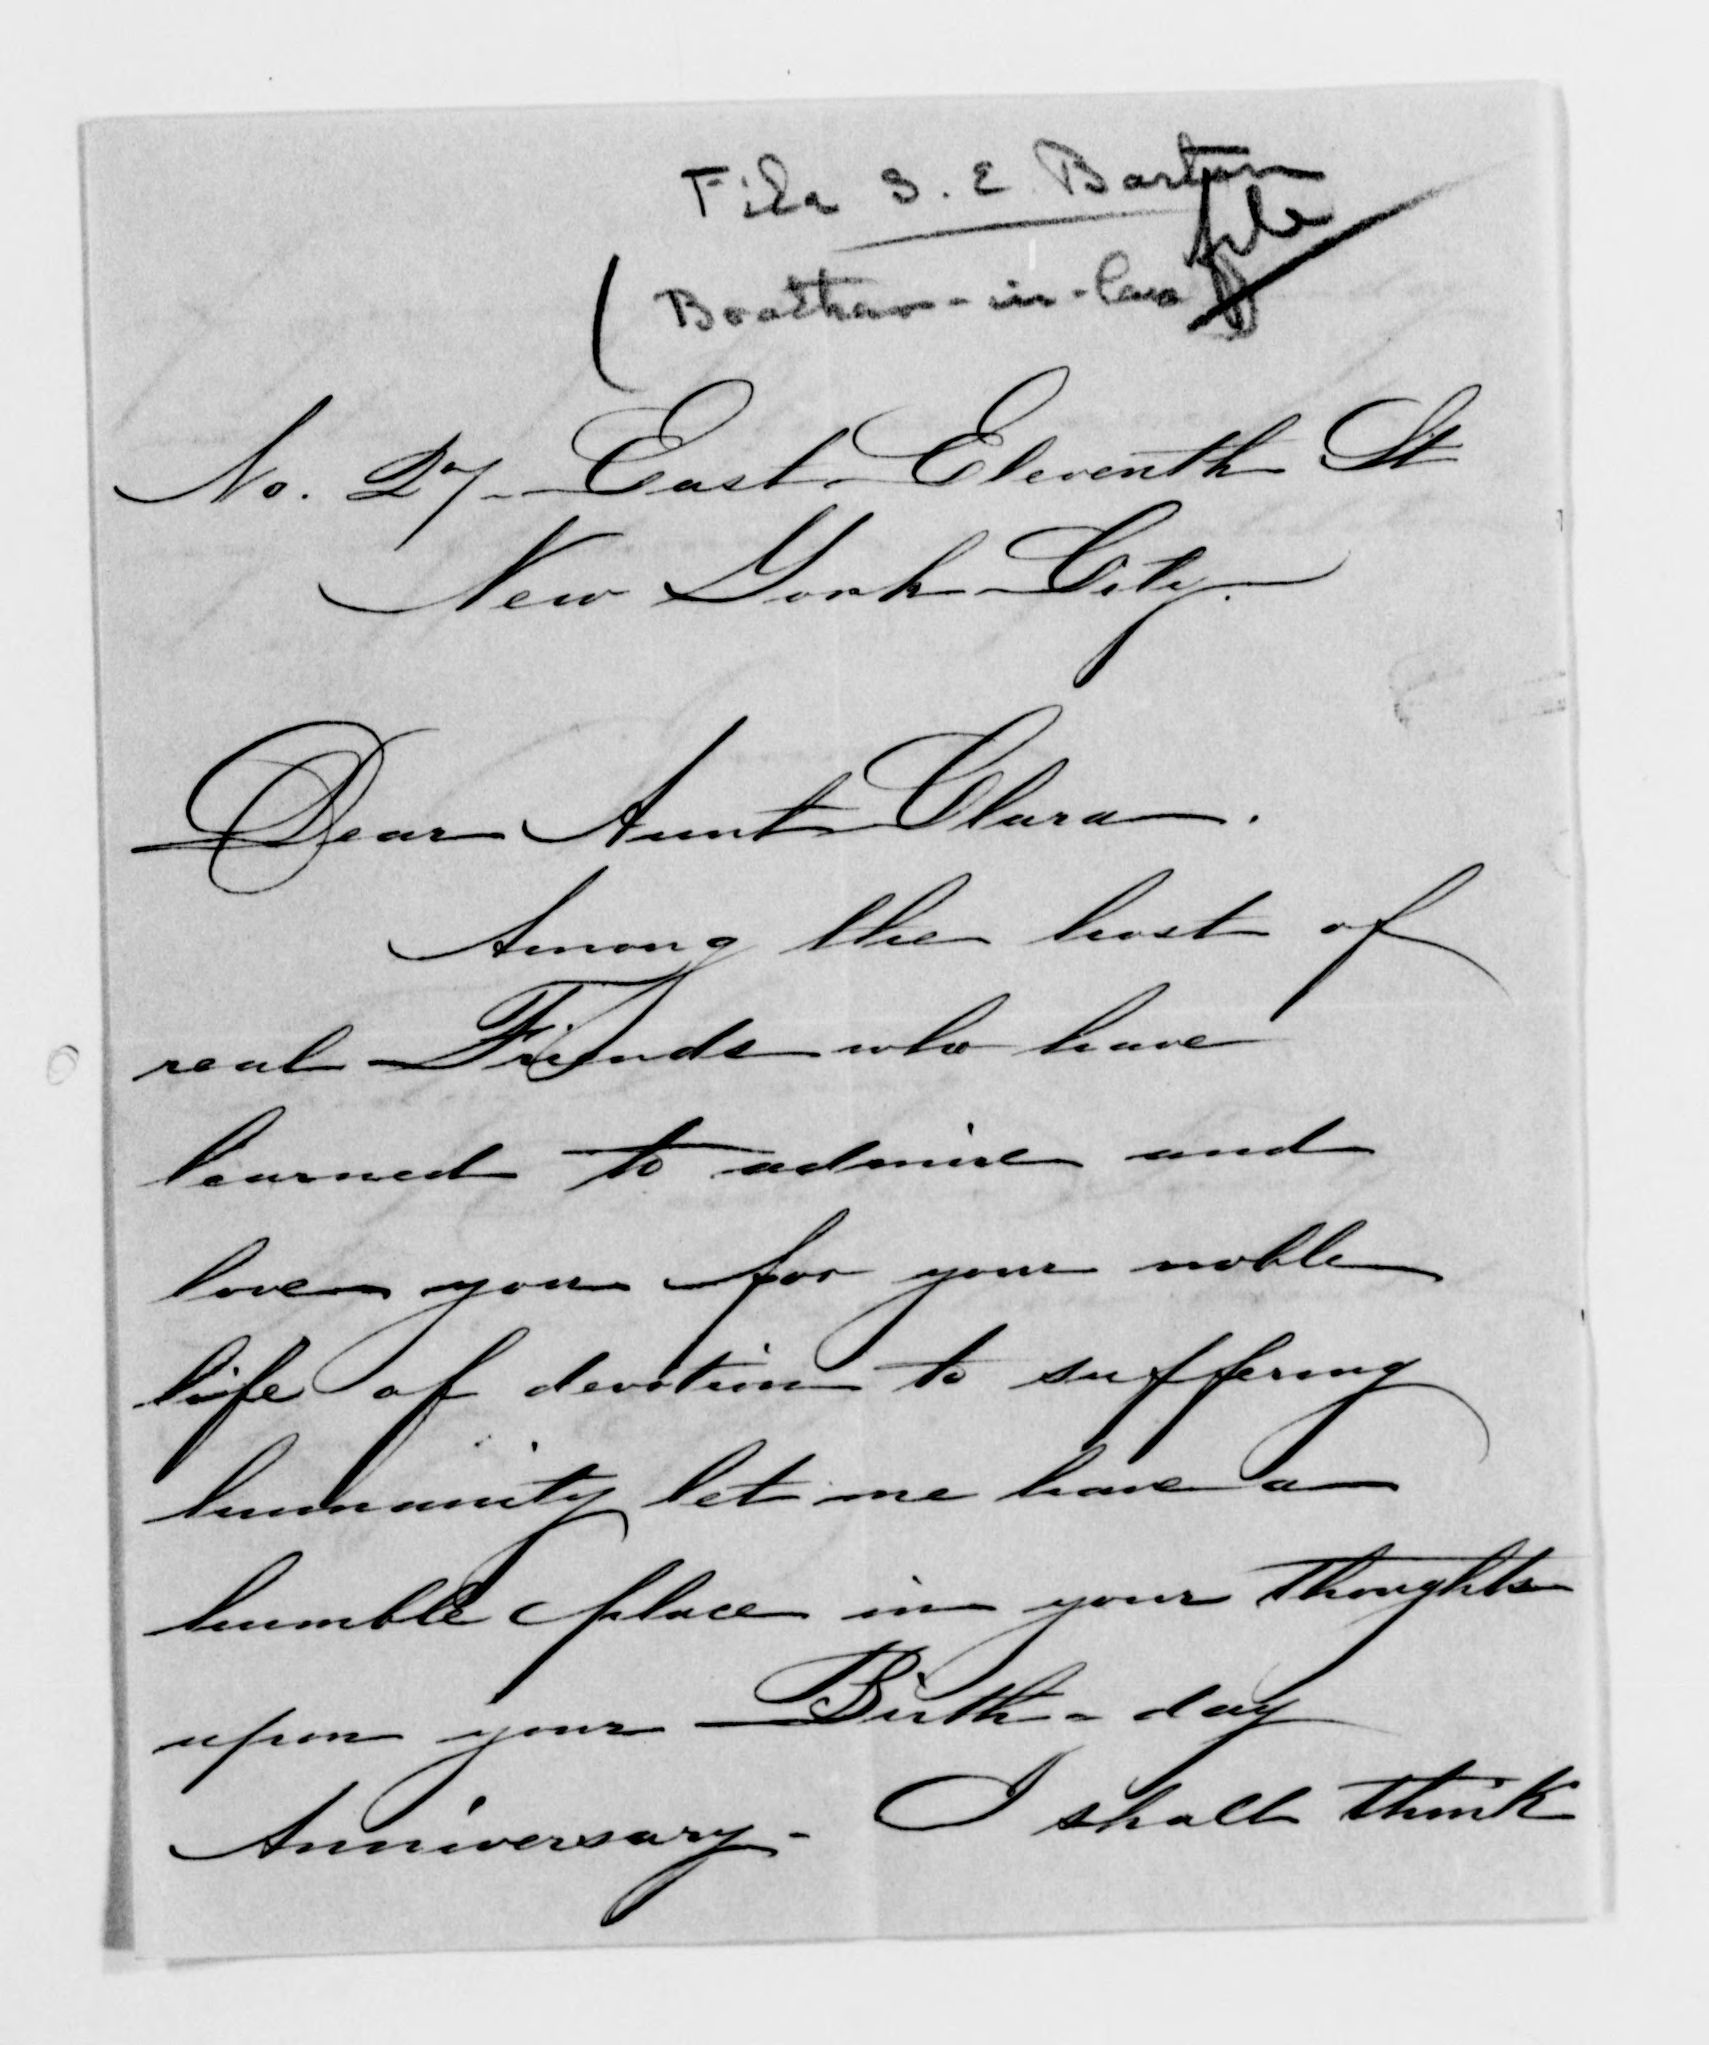 File S. E. Barton
file
(Brother-in-law
No. 27 - East Eleventh St
New York City.
Dear Aunt Clara.
Among the host of
real Friends who have
learned to admire and
love you for your noble
life of devotion to suffering
humanity let me have a
humble place in your thoughts
upon your Birth-day
Anniversary - I shall think